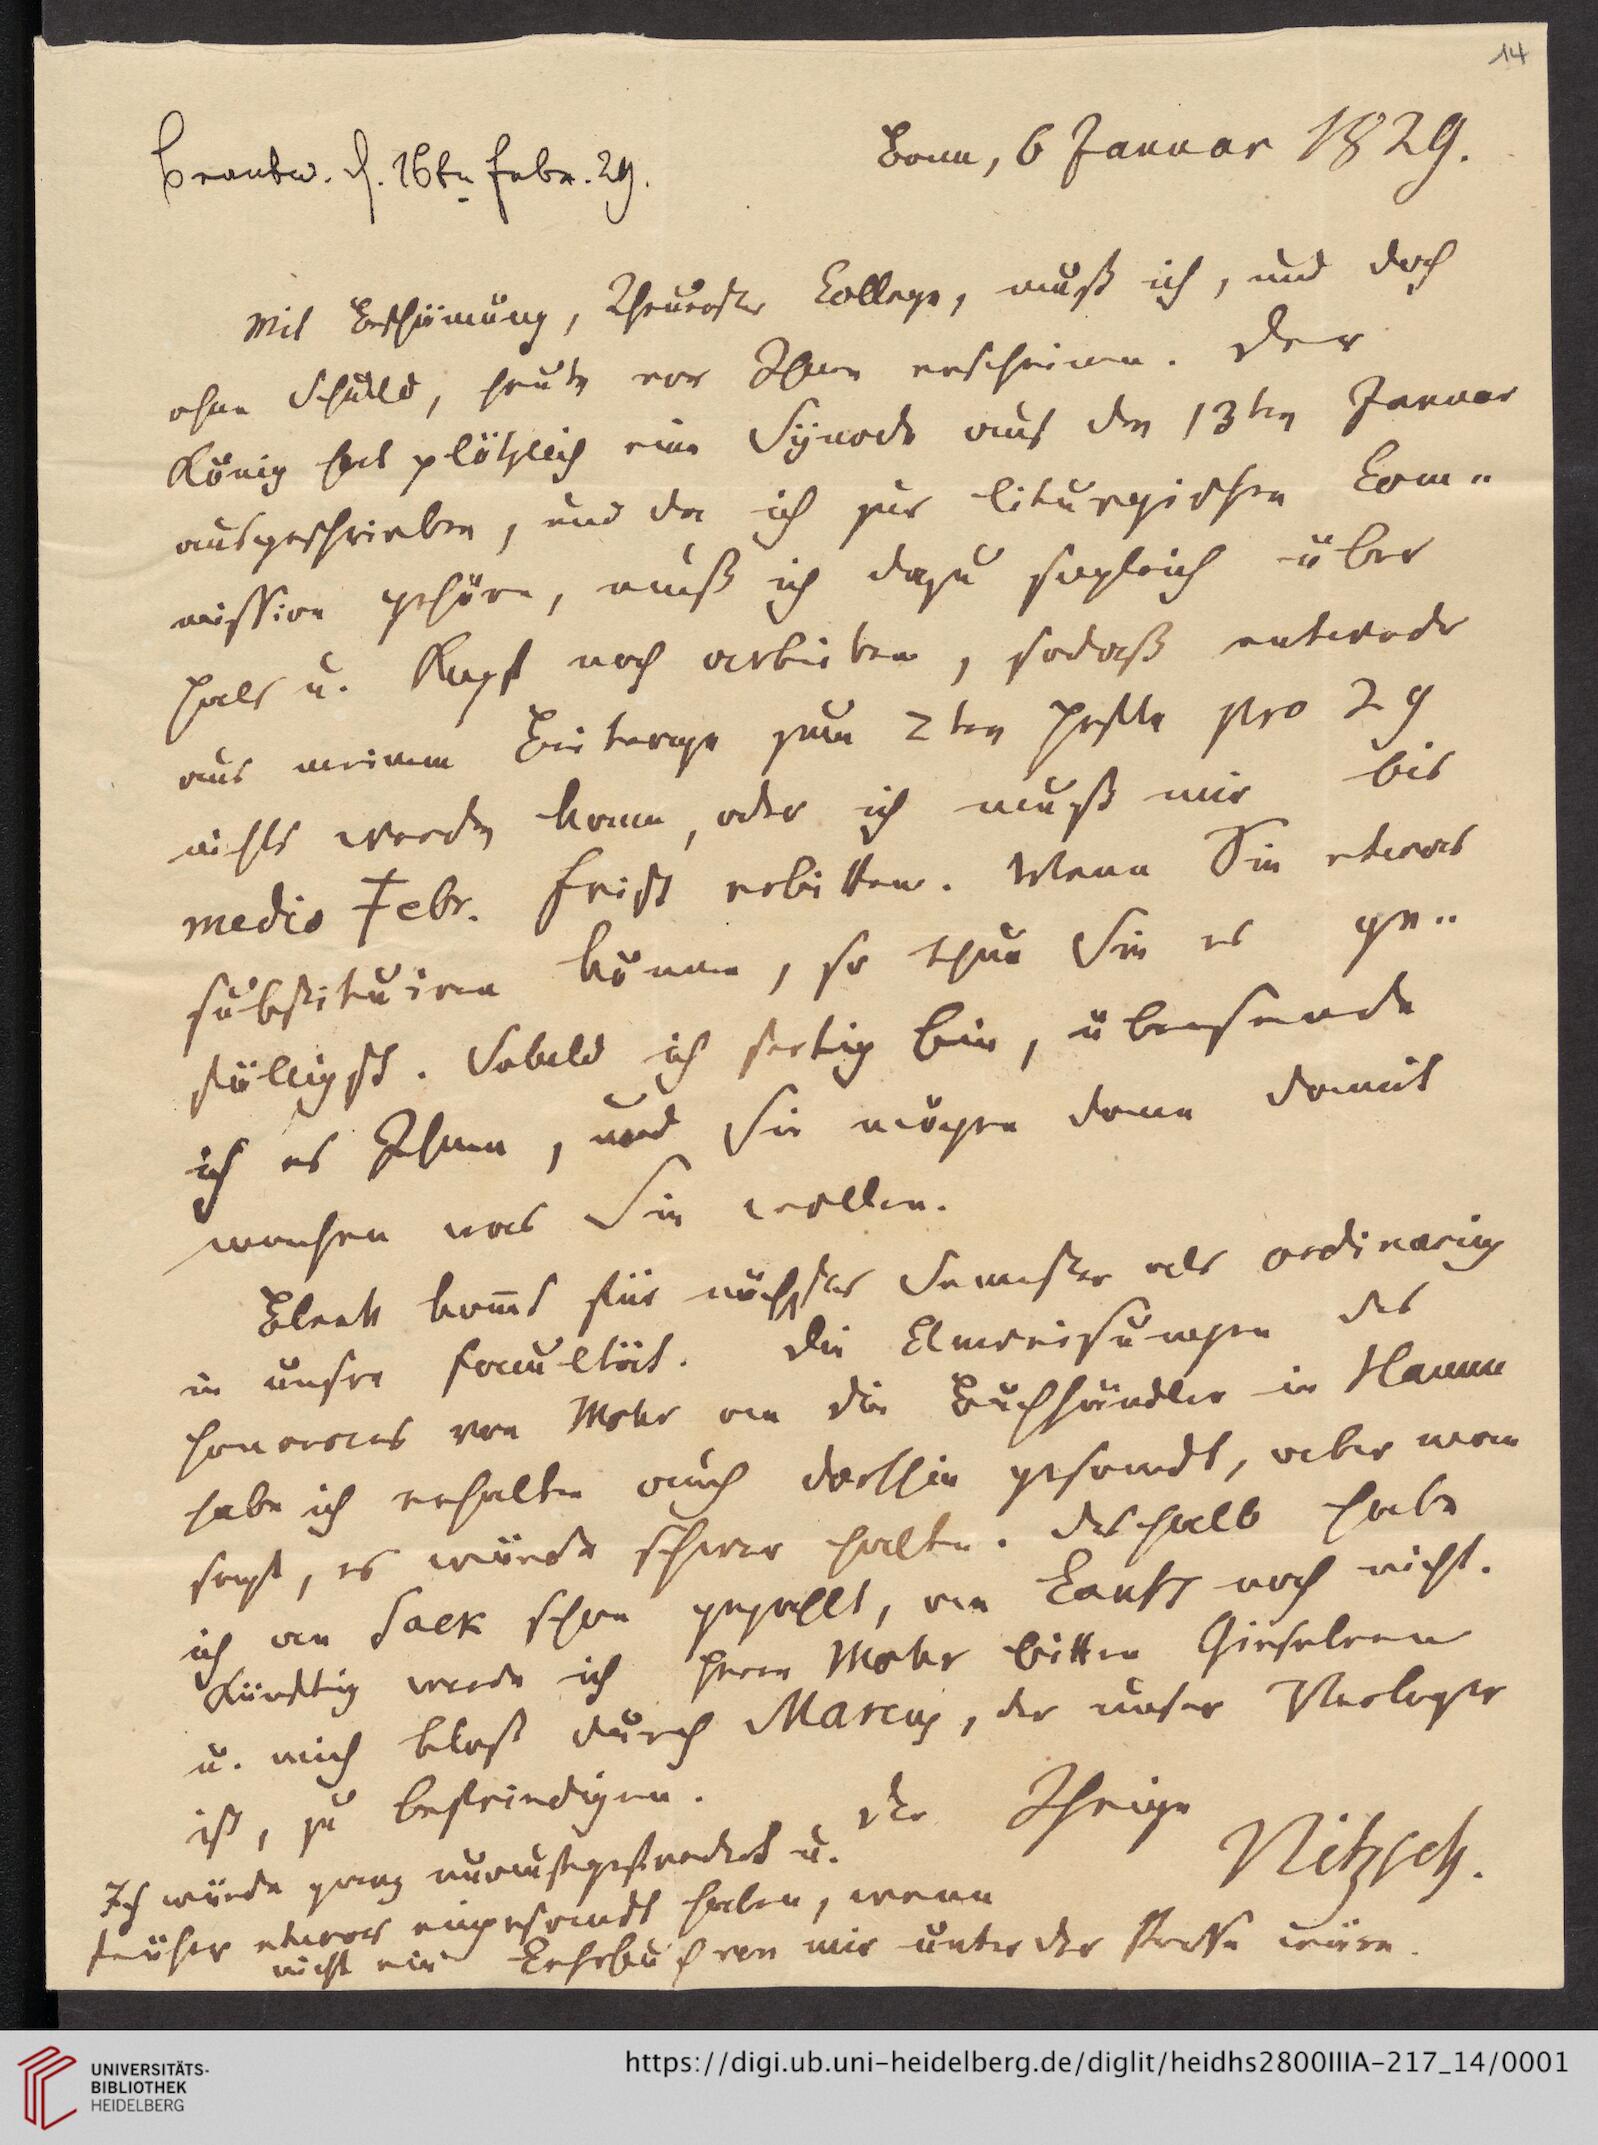 14
beantw. d. 16tn Febr. 29.
Bonn, 6 Januar 1829.
Mit Beschämung, Theuerster College, muß ich, und doch
ohne Schuld, heute vor Ihnen erscheinen. Der
König hat plötzlich eine Synode auf den 13ten Januar
ausgeschrieben, und da ich zur liturgischen Com-
mission gehöre, muß ich dazu sogleich über
Hals u. Kopf noch arbeiten, sodaß entweder
aus meinem Beitrage zum 2ten Hefte pro 29
nichts werden kann, oder ich muß mir bis
medio Febr. Frist erbitten. Wenn Sie etwas
substituiren können, so thun Sie es ge-
fälligst. Sobald ich fertig bin, übersende
ich es Ihnen, und Sie mögen dann damit
machen was Sie wollen.
Bleek komt für nächstes Semester als ordinarius
in unsre Facultät. Die Anweisungen des
Honorars von Mohr an die Buchhändler in Hamm
habe ich erhalten auch dorthin gesandt, aber man
sagt, es würde schwer halten. Deshalb habe
ich an Sack schon gezahlt, an noch nicht.
Künftig werde ich Herrn Mohr bitten Gieselern
u. mich bloß durch Marcus, der unser Verleger
ist, zu befriedigen.
Der Ihrige
Nitzsch.
Ich würde ganz unausgefordert u.
früher etwas eingesandt haben, wenn
nicht ein Lehrbuch von mir unter der Presse wäre.
UNIVERSITÄTS-
BIBLIOTHEK
HEIDELBERG
https://digi.ub.uni-heidelberg.de/diglit/heidhs2800IIIA-217_14/0001